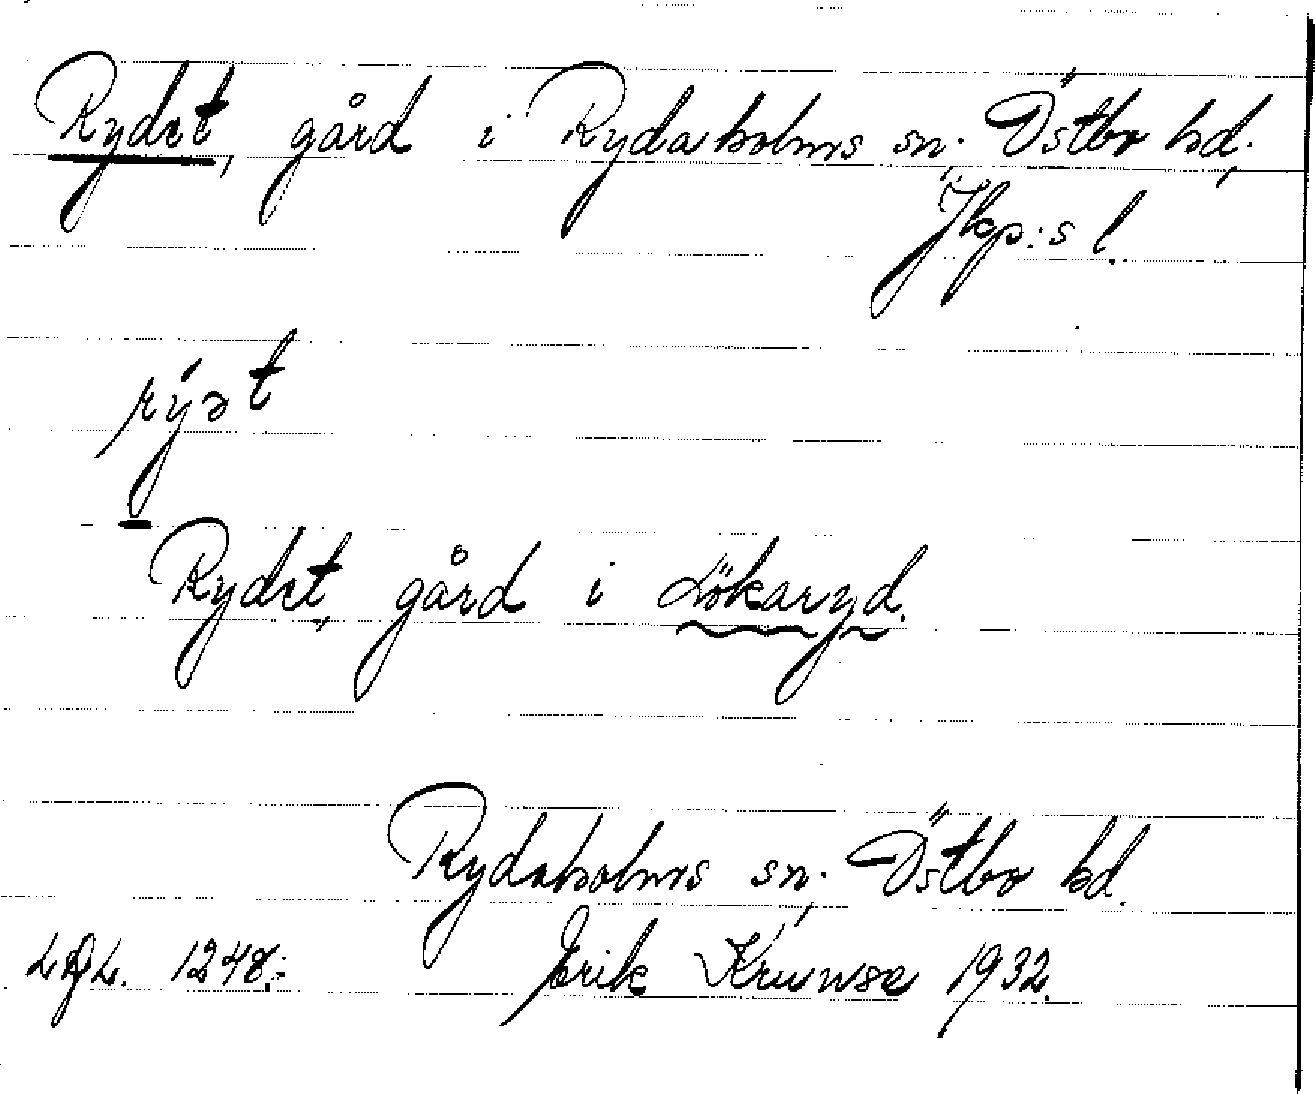 Rydet, gård i Rydaholms sn. Östbo hd.,
Jkp:s l.
rýət
Rydet, gård i Lökaryd.
Rydaholms sn., Östbo hd.
1248. Erik 1932.